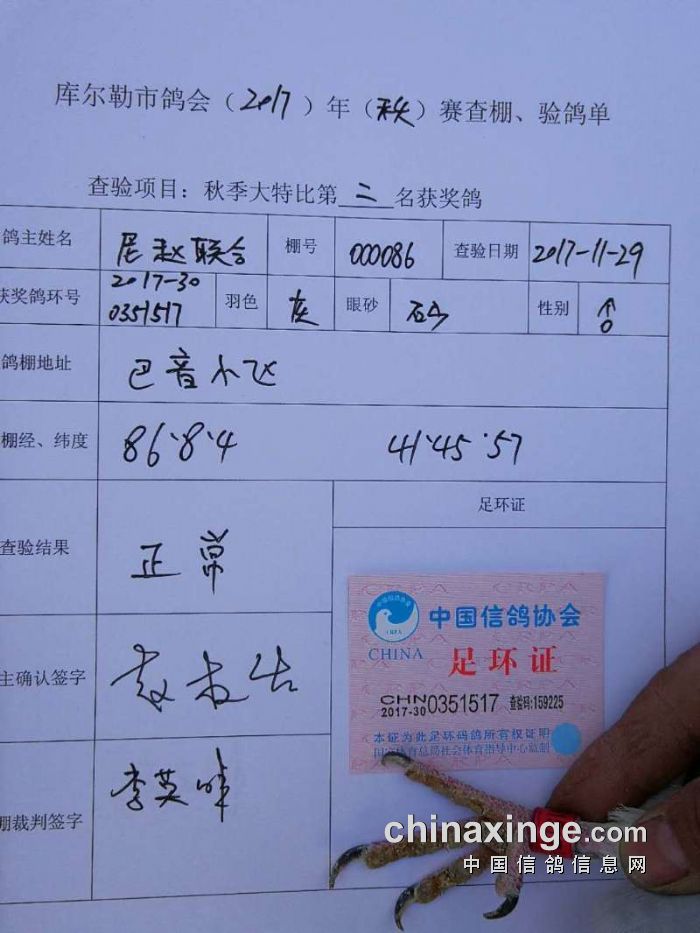 库尔勒市鸽会（2017）年（秋）赛查棚、验鸽单
查验项目：秋季大特比第二名获奖鸽
鸽主姓名 尼赵联合 棚号 000086 查验日期 2017-11-29
获奖鸽环号 2017-30 0351517 羽色 灰 眼砂 石少 性别
鸽棚地址 巴音小飞
棚经、纬度 86·8·4 41·45·57
查验结果 正常
足环证
主确认签字
棚裁判签字 李英
中国信鸽协会
CHINA
足环证
CHN
2017-30 0351517 查验码:159225
本证为此足环码鸽所有权证明
国家体育总局社会体育指导中心监制
chinaxinge.com
中国信鸽信息网